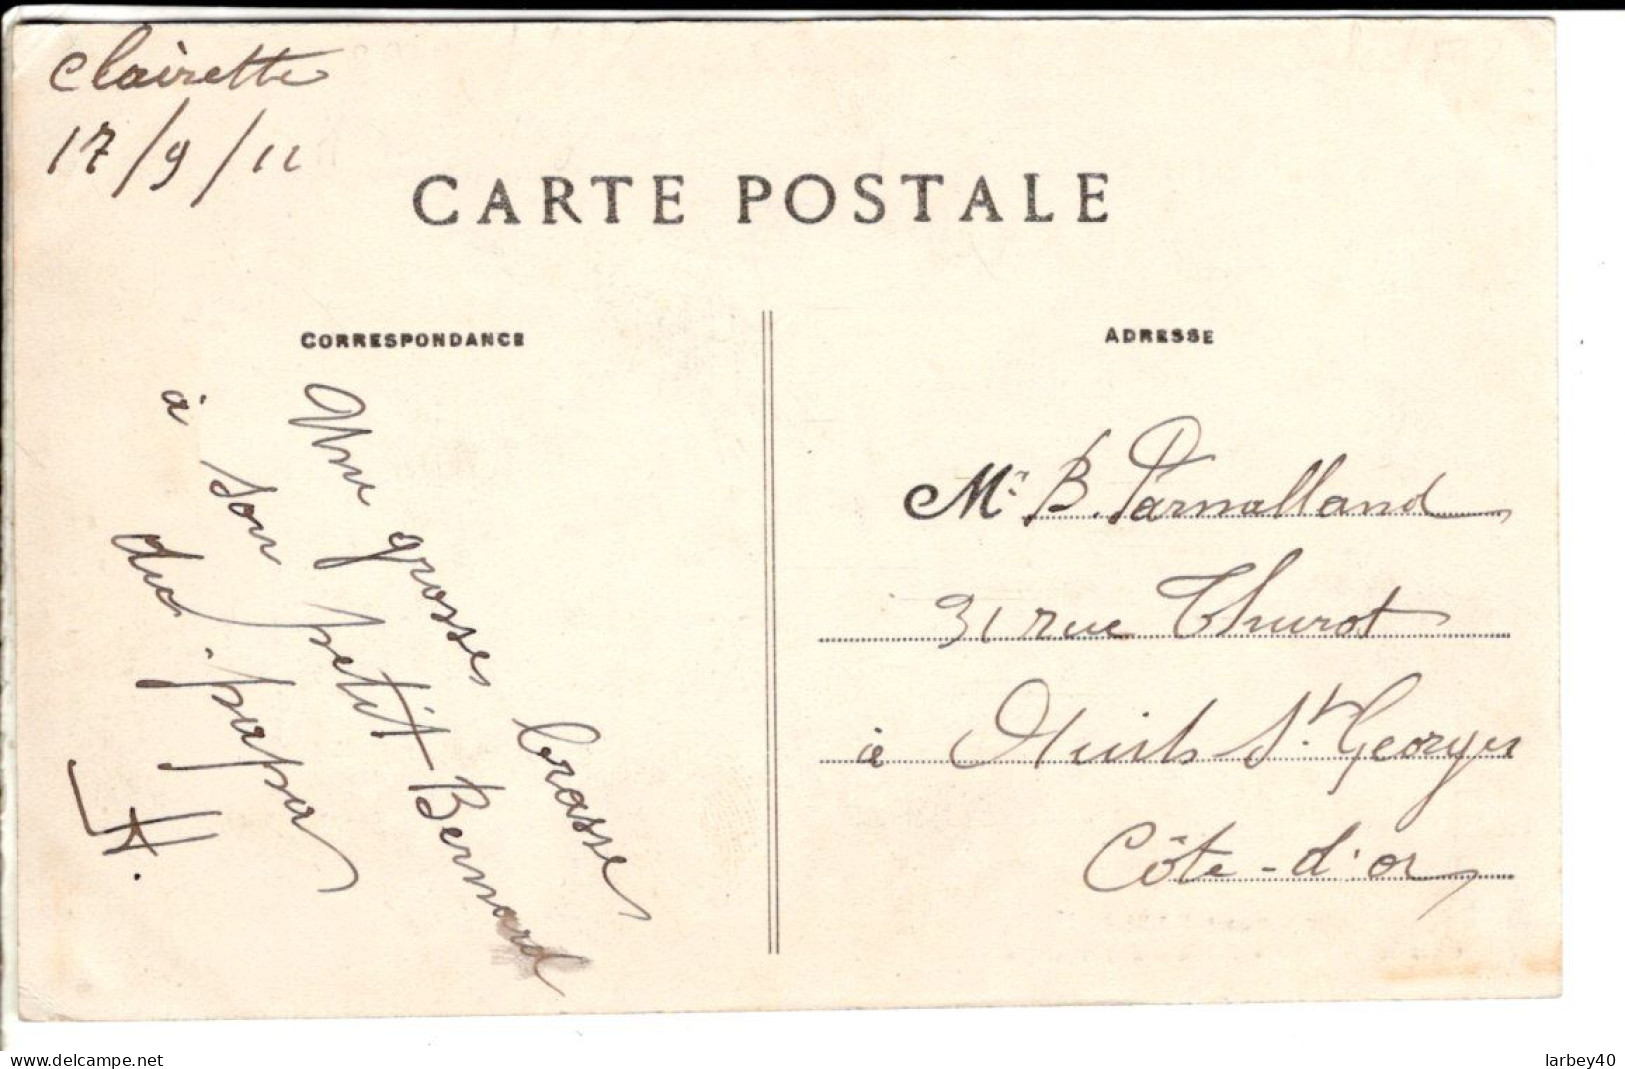 Clairette
17/9/11
CARTE POSTALE
CORRESPONDANCE
Une grosse brasse
à son petit Bernard
du papa
H.
ADRESSE
Mr B. Parnalland
31 rue Thurot
à Nuits St. Georges
Côte-d'or
www.delcampe.net
larbey40